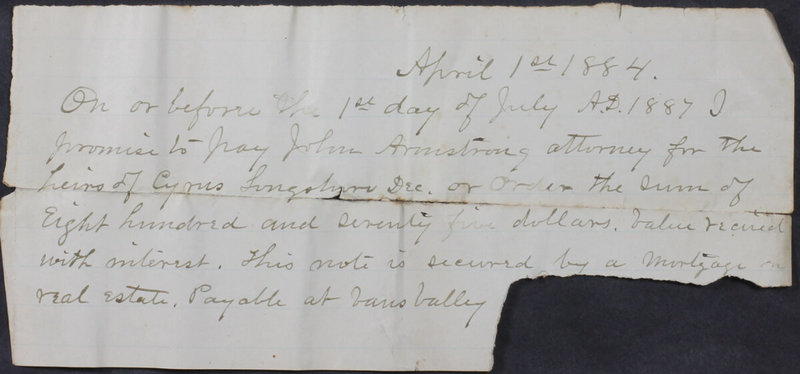 April 1st 1884.
On or before the 1st day of July A.D. 1887 I
promise to pay John Armstrong attorney for the
heirs of Cyrus Longshore Dec. or order the sum of
Eight hundred and seventy five dollars. Value recuied
with interest. This note is secured by a Mortgage on
real estate. Payable at Vans Valley